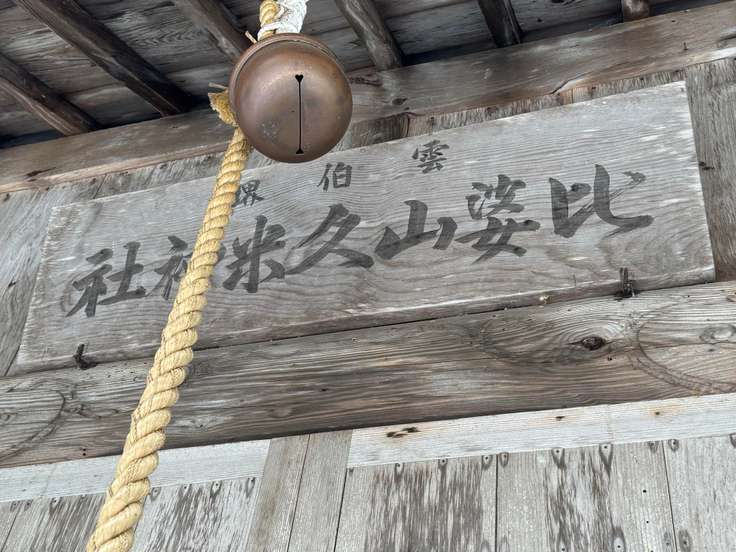 雲伯堺
比婆山久米神社